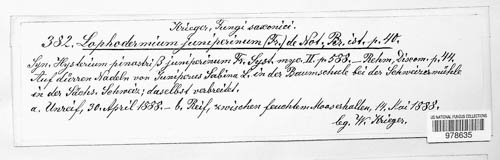 Krieger, Fungi saxonici.
382. Lophodermium juniperinum (Fr.) de Not., Pir. ist. p. 40.
Syn. Hysterium pinastri β juniperinum Fr. Syst. myc. II. p. 588. – Rehm, Discom. p. 44.
Auf dürren Nadeln von Juniperus Sabina L. in der Baumschule bei der Schweizermühle
in der Sächs. Schweiz; daselbst verbreitet.
a. Unreif, 30. April 1888. – b. Reif, zwischen feuchtem Moos erhalten, 14. Mai 1888.
leg. W. Krieger.
US NATIONAL FUNGUS COLLECTIONS
978635